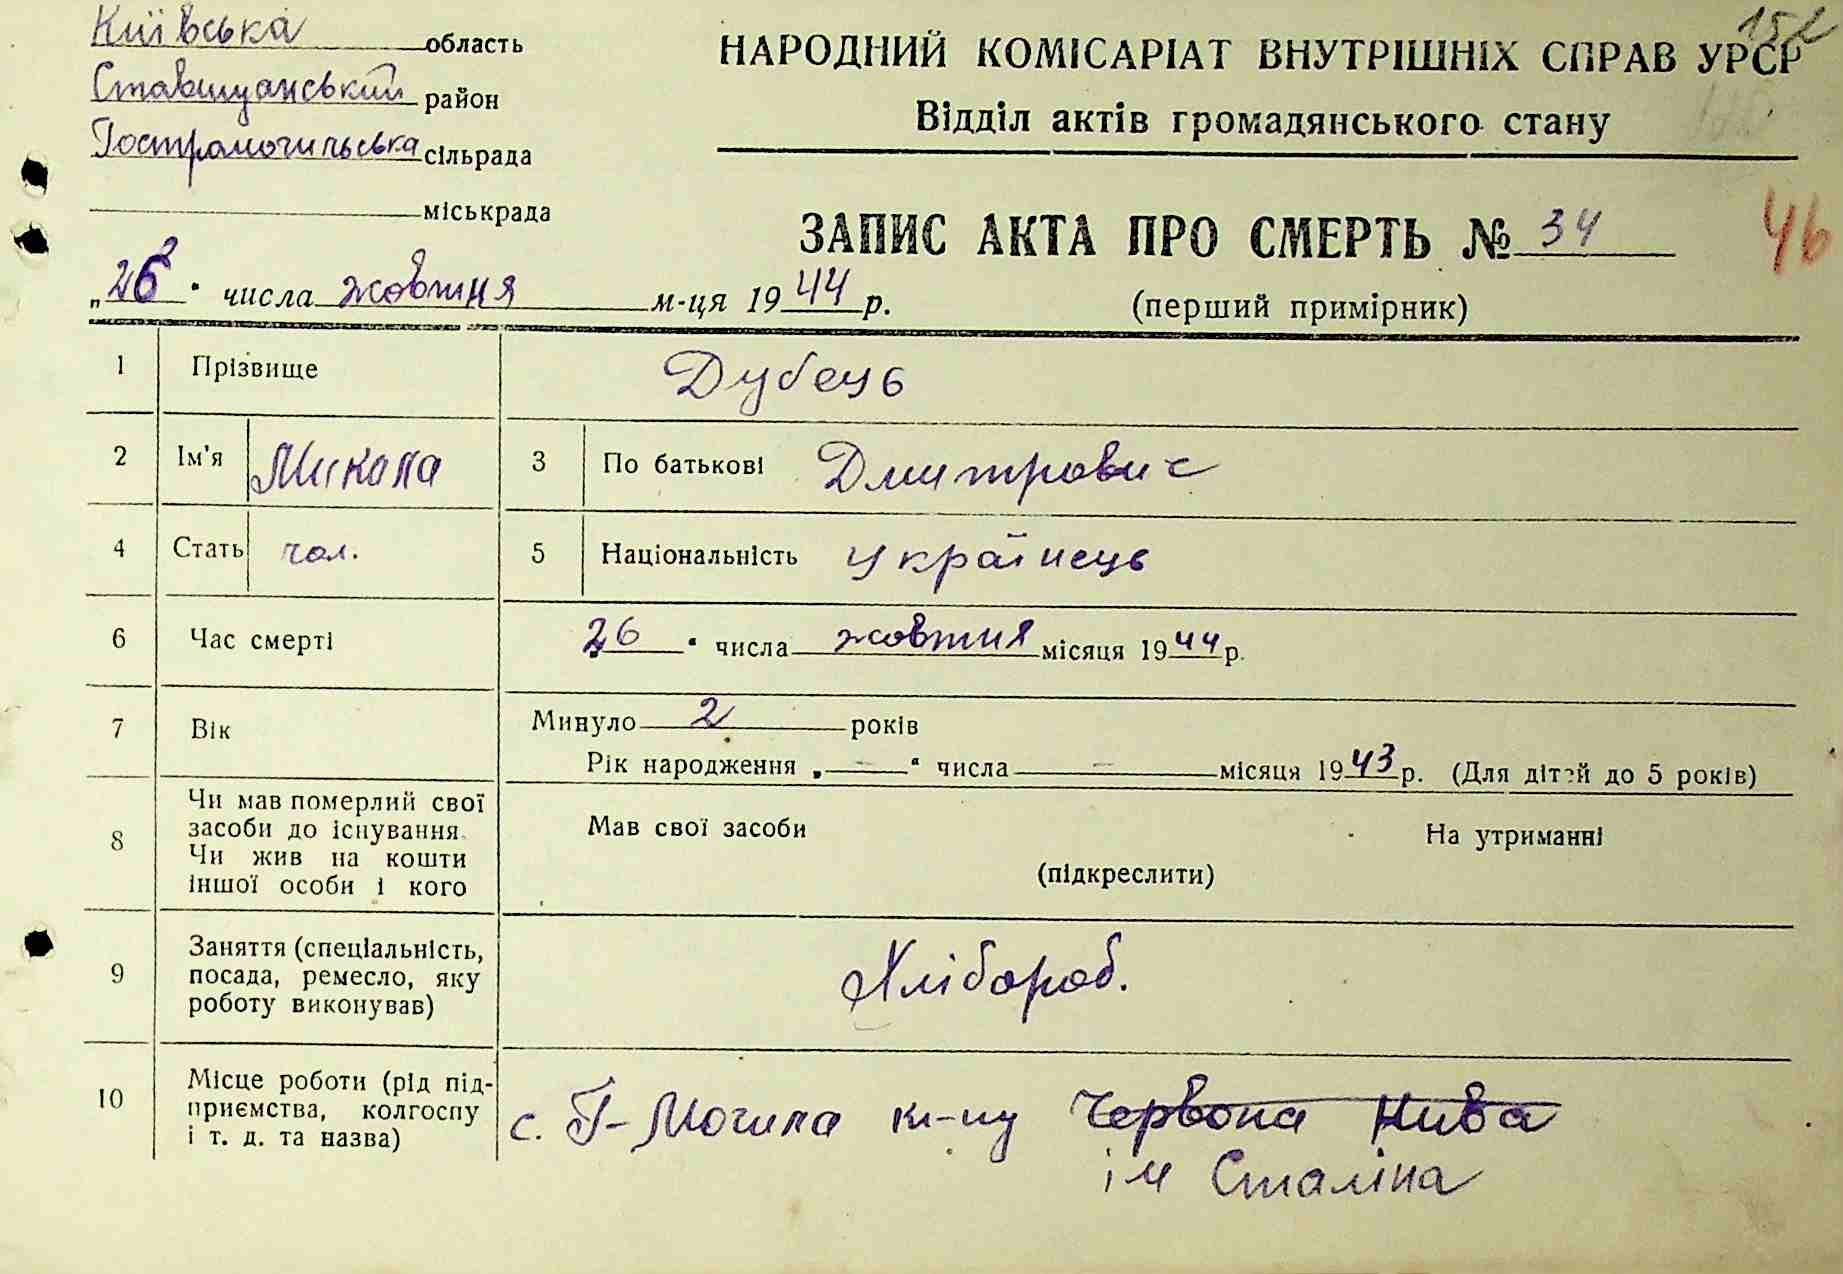 Київська область
Ставищанський район
Гостромогильська сільрада
міськрада
НАРОДНИЙ КОМІСАРІАТ ВНУТРІШНІХ СПРАВ УРСР
Відділ актів громадянського стану
ЗАПИС АКТА ПРО СМЕРТЬ № 34
46
(перший примірник)
„26“ числа жовтня м-ця 1944 р.
1 Прізвище Дубець
2 Ім'я Микола 3 По батькові Дмитрович
4 Стать чол. 5 Національність Українець
6 Час смерті 26“ числа жовтня місяця 1944 р.
7 Вік Минуло 2 років
Рік народження „—“ числа — місяця 1943 р. (Для дітей до 5 років)
8 Чи мав померлий свої засоби до існування. Чи жив на кошти іншої особи і кого
Мав свої засоби На утриманні
(підкреслити)
9 Заняття (спеціальність, посада, ремесло, яку роботу виконував) Хлібороб.
10 Місце роботи (рід підприємства, колгоспу і т. д. та назва) с. Г-Могила к-пу Червона Нива
ім Сталіна